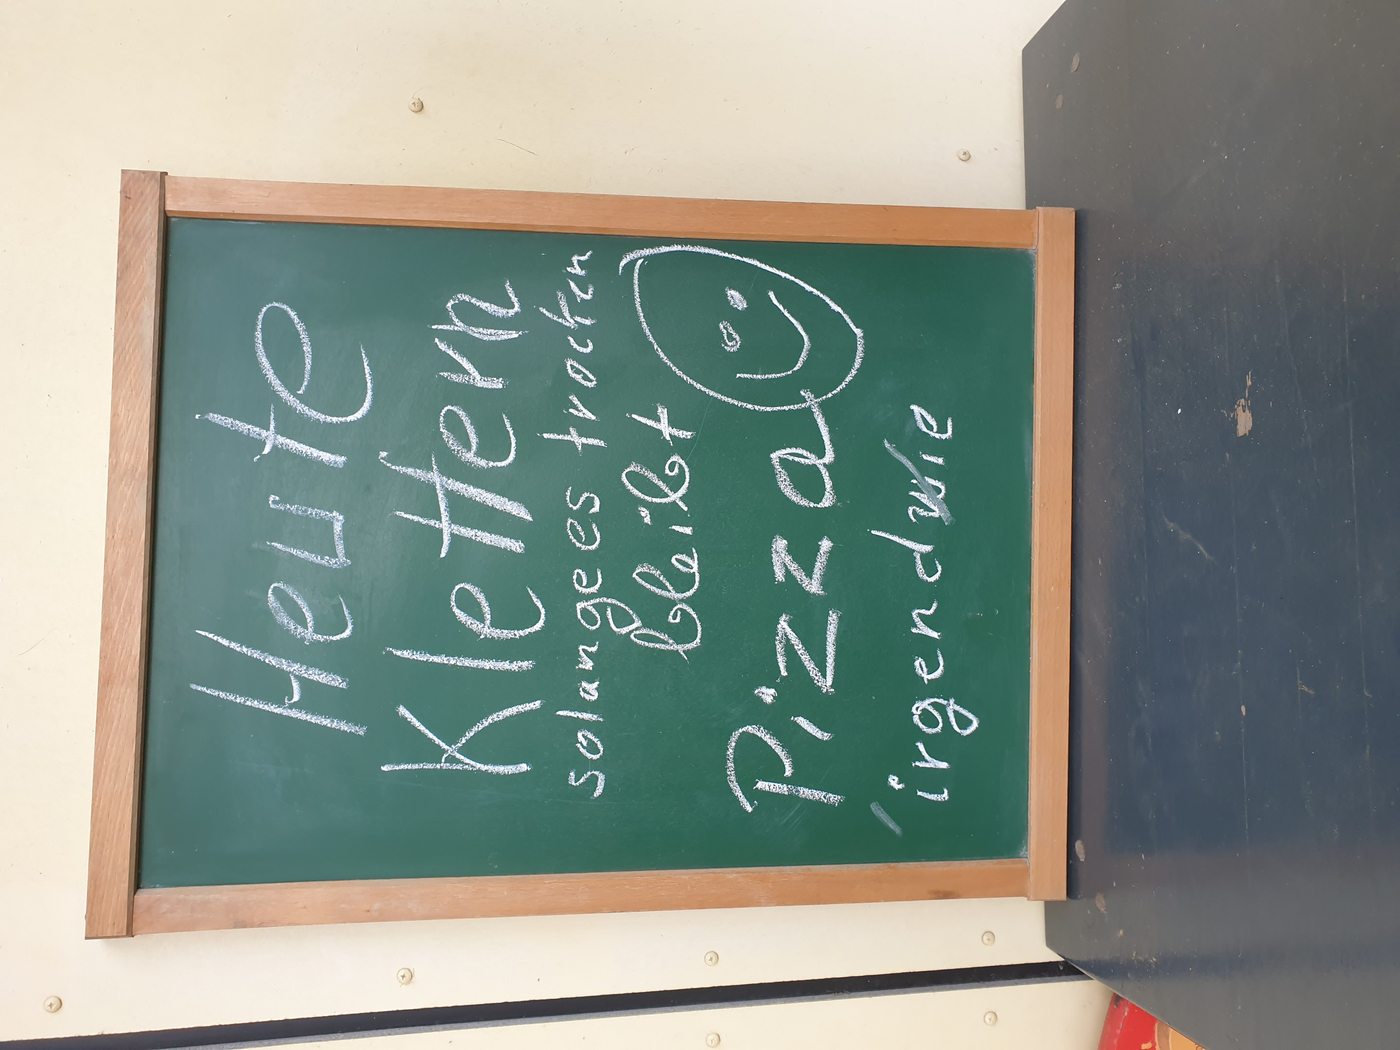 Heute
Klettern
solange es trocken
bleibt
Pizza
irgendwie